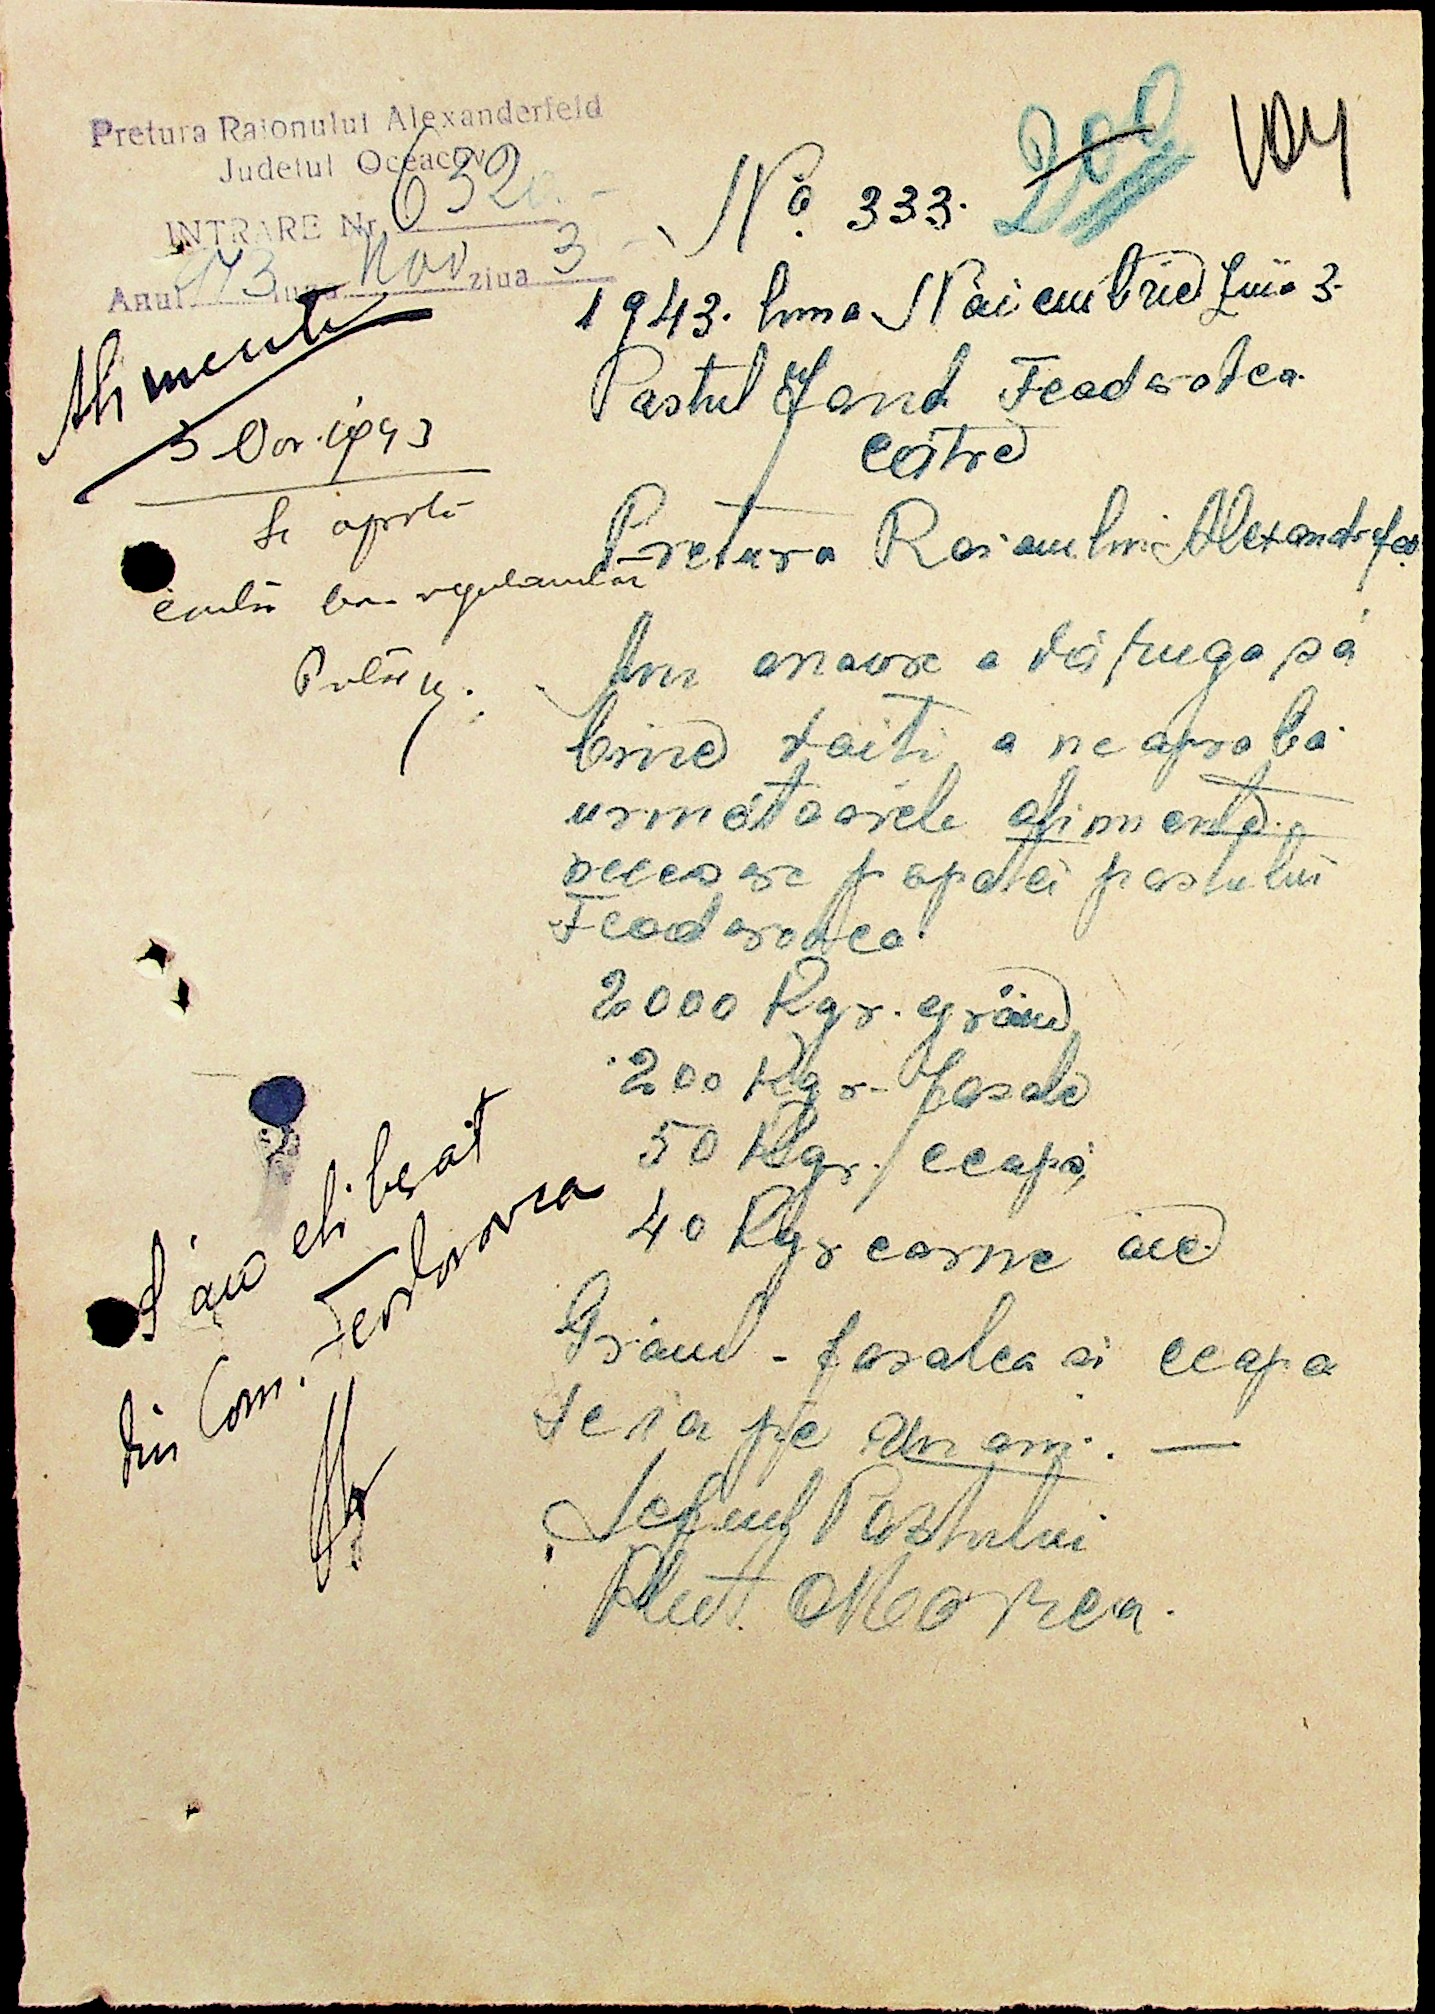 Pretura Raionului Alexanderfeld
Judetul Oceacov
INTRARE Nr. 632
Anul 943 luna Nov ziua 3
200
104
Alimente
3 Nov. 1943
Se aprobă
No. 333.
1943. luna Noiembrie Ziua 3.
Postul Jand Feodorovca
către
Pretura Raionului Alexandrfeld
Am onoare a vă ruga să
bine voiti a ne aproba
următoarele alimente
necesare popotei postului
Feodorovca
2000 Kgr. grâu
200 Kgr. fasole
50 Kgr. ceapă
40 Kgr carne oie
Grâul - fasolea si ceapa
se ia pe un an. —
Seful Postului
Plut.
S'au eliberat
din Com. Feodorovca